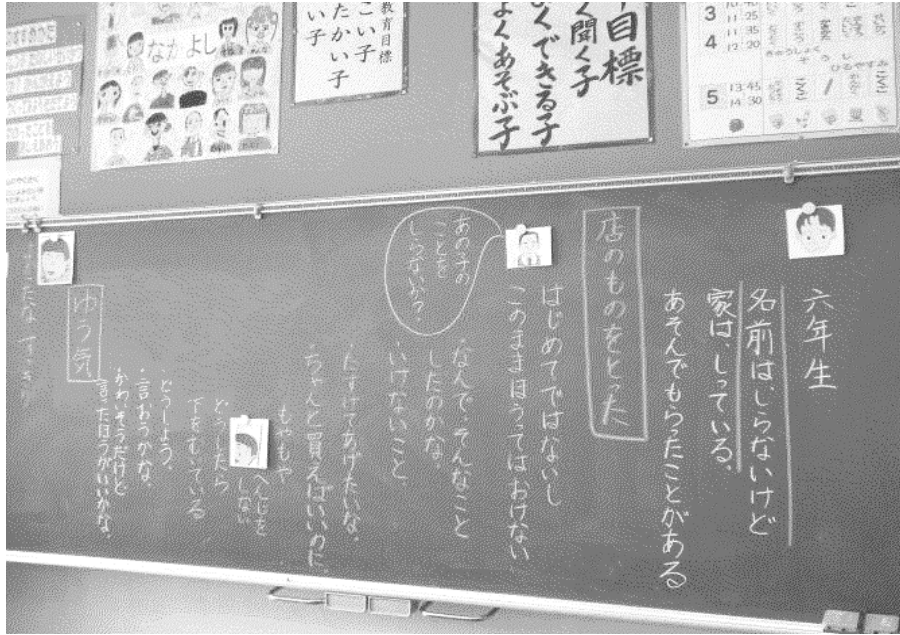 なかよし
教育目標
たかい子
い子
目標
く聞く子
くできる子
よくあそぶ子
3
10
11 25
4
11 35
12 20
きゅうしょく
そうじ
ひるやすみ
5
13:45
14 30
六年生
名前は、しらないけど
家は、しっている。
あそんでもらったことがある
店のものをとった
はじめてではないし
このままほうってはおけない
あの子の
ことを
しらないか?
・なんで、そんなこと
したのかな。
・いけないこと。
・たすけてあげたいな。
・ちゃんと買えばいいのに。
もやもや
へんじを
しない
どうしたら
下をむいている
・どうしよう。
・言おうかな。
・かわいそうだけど
言ったほうがいいかな。
ゆう気